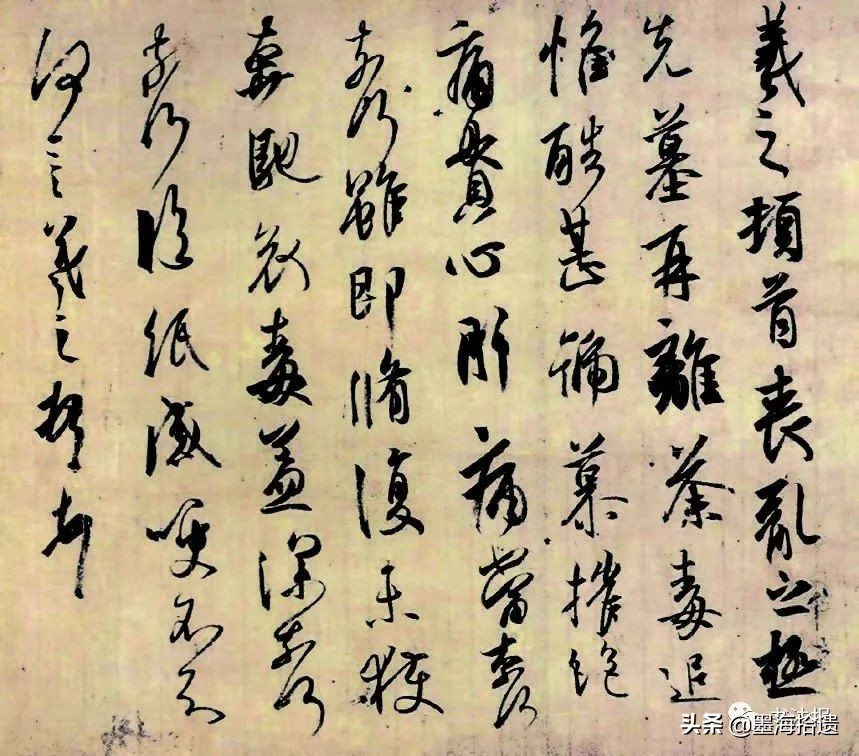 羲之頓首喪亂之極
先墓再離荼毒追
惟酷甚號慕摧絶
痛貫心肝痛當奈何
奈何雖即脩復未獲
奔馳哀毒益深奈何
奈何臨紙感哽不知
何言羲之頓首頓首
书法报
头条 @墨海拾遗